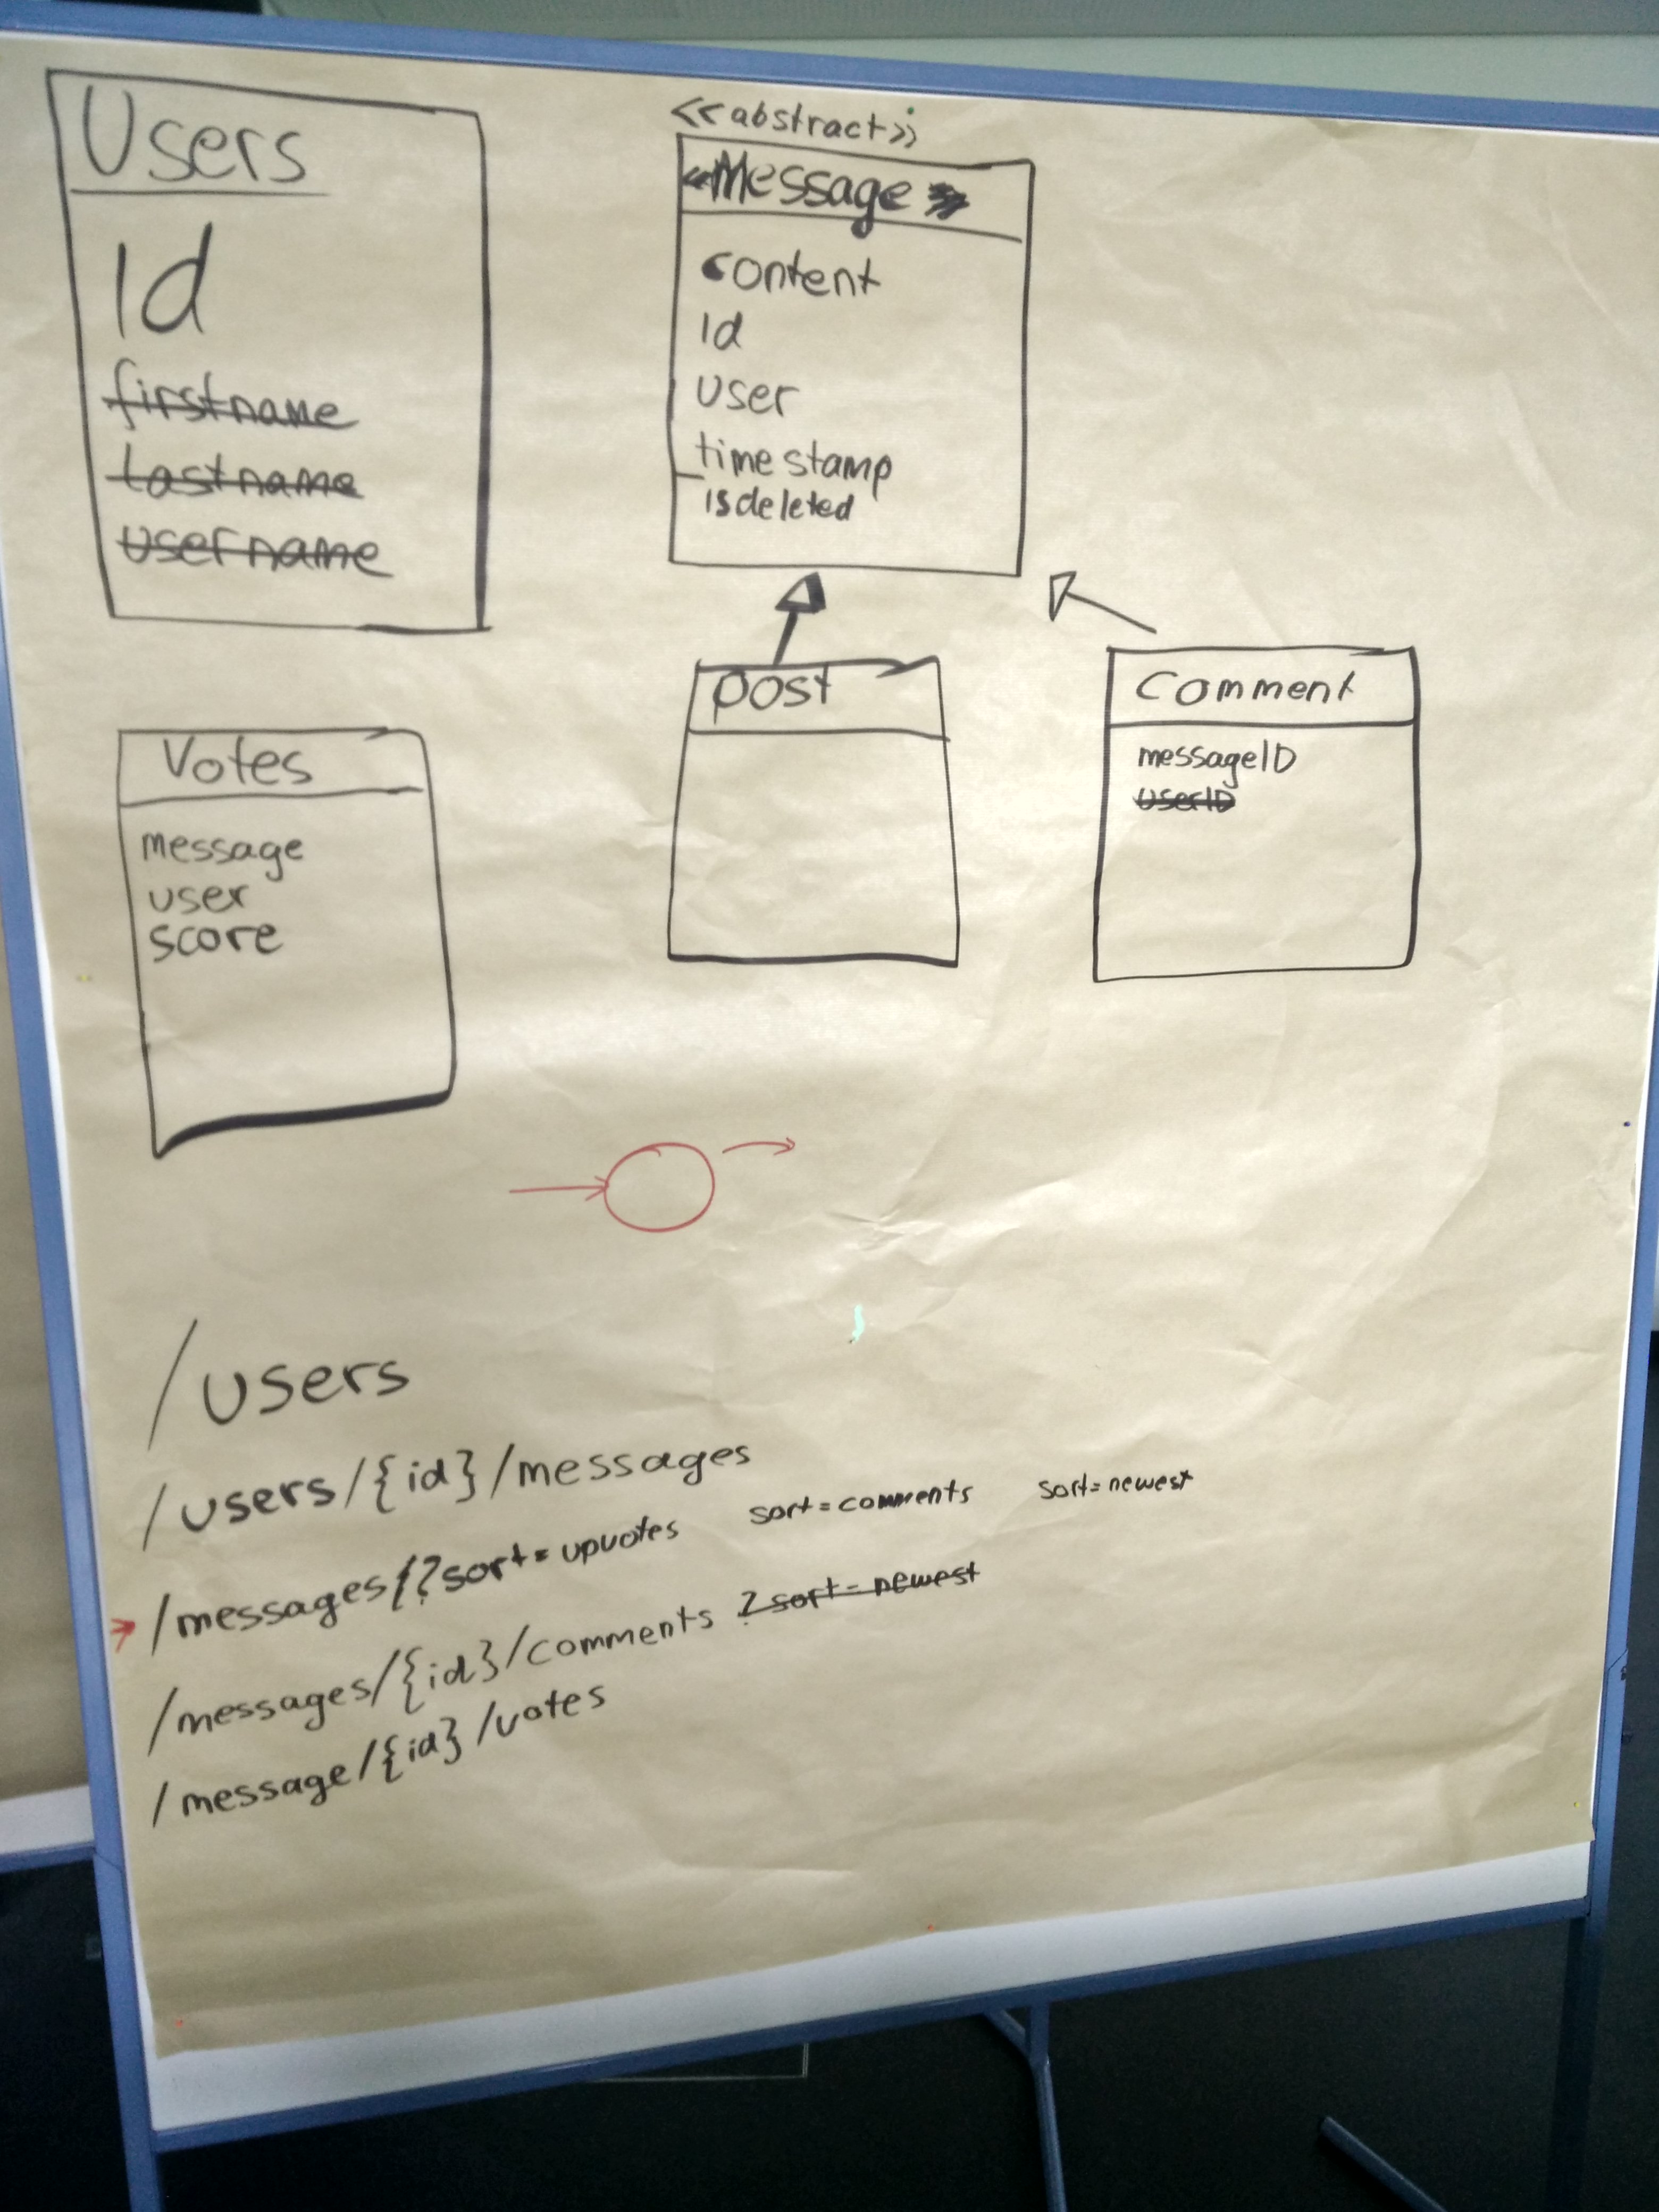 Users
Id
firstname
lastname
username
<<abstract>>
«Message»
content
Id
user
timestamp
isdeleted
post
Comment
messageID
userID
Votes
message
user
score
/users
/users/{id}/messages
/messages/?sort=upvotes sort=comments sort=newest
/messages/{id}/comments ?sort=newest
/message/{id}/votes